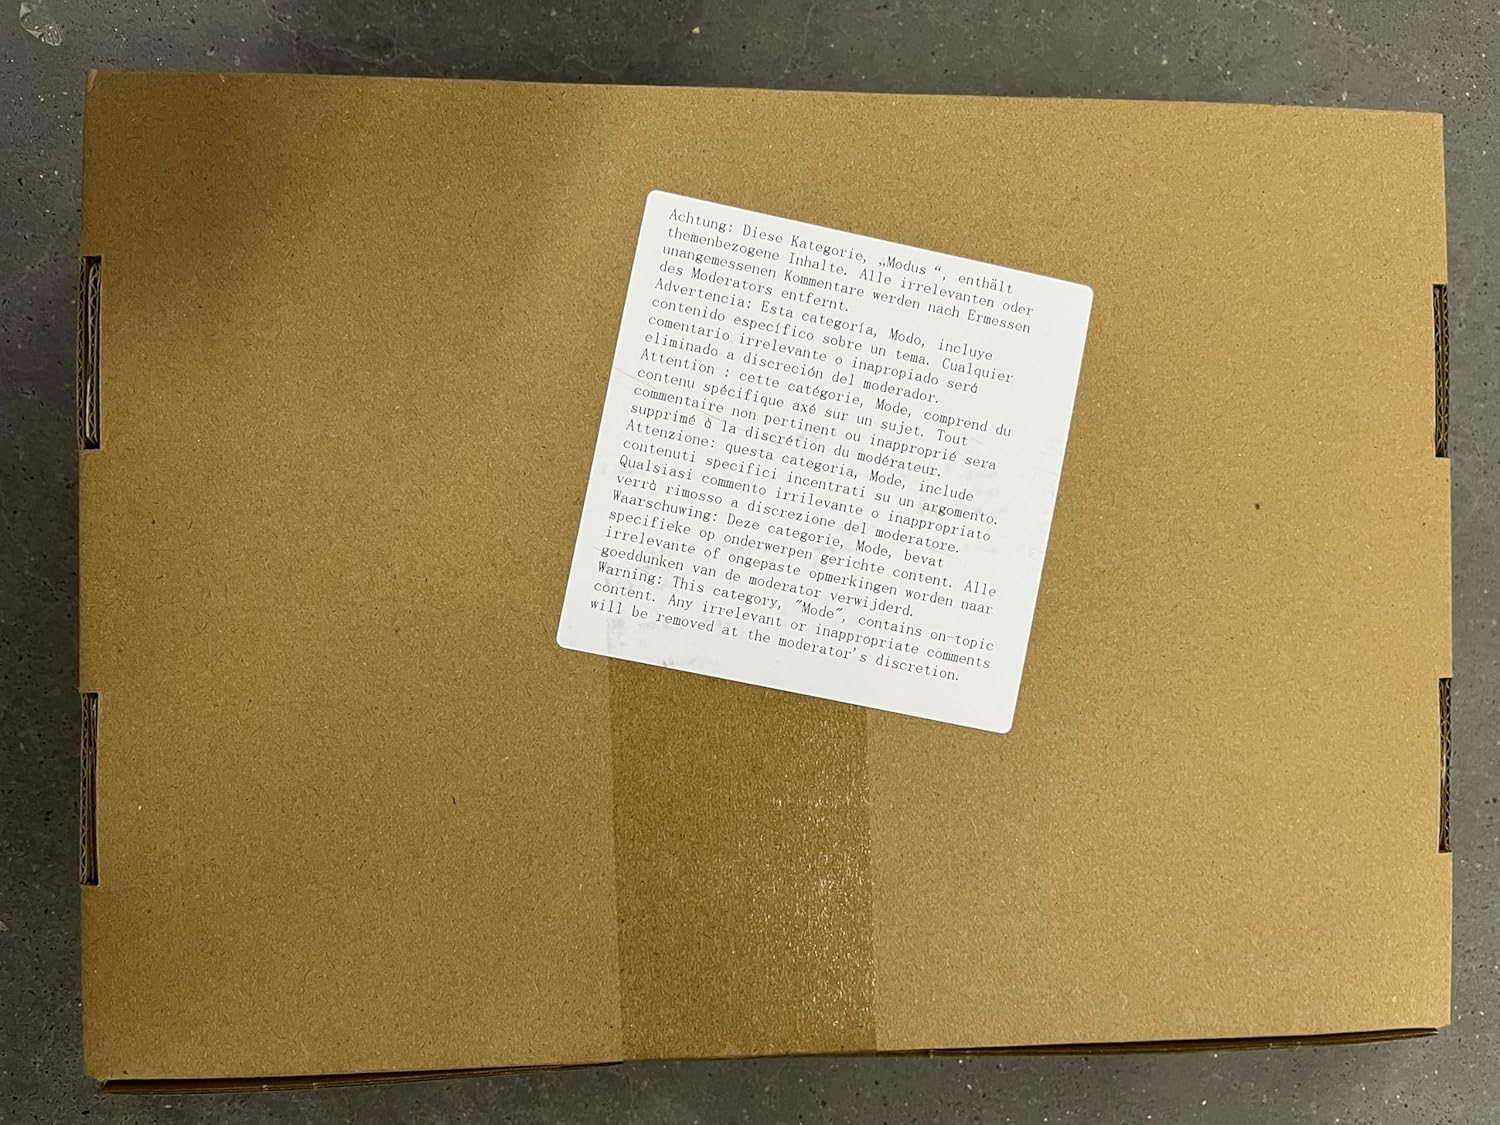 Achtung: Diese Kategorie, „Modus “, enthält
themenbezogene Inhalte. Alle irrelevanten oder
unangemessenen Kommentare werden nach Ermessen
des Moderators entfernt.
Advertencia: Esta categoría, Modo, incluye
contenido específico sobre un tema. Cualquier
comentario irrelevante o inapropiado será
eliminado a discreción del moderador.
Attention : cette catégorie, Mode, comprend du
contenu spécifique axé sur un sujet. Tout
commentaire non pertinent ou inapproprié sera
supprimé à la discrétion du modérateur.
Attenzione: questa categoria, Mode, include
contenuti specifici incentrati su un argomento.
Qualsiasi commento irrilevante o inappropriato
verrà rimosso a discrezione del moderatore.
Waarschuwing: Deze categorie, Mode, bevat
specifieke op onderwerpen gerichte content. Alle
irrelevante of ongepaste opmerkingen worden naar
goeddunken van de moderator verwijderd.
Warning: This category, "Mode", contains on-topic
content. Any irrelevant or inappropriate comments
will be removed at the moderator's discretion.